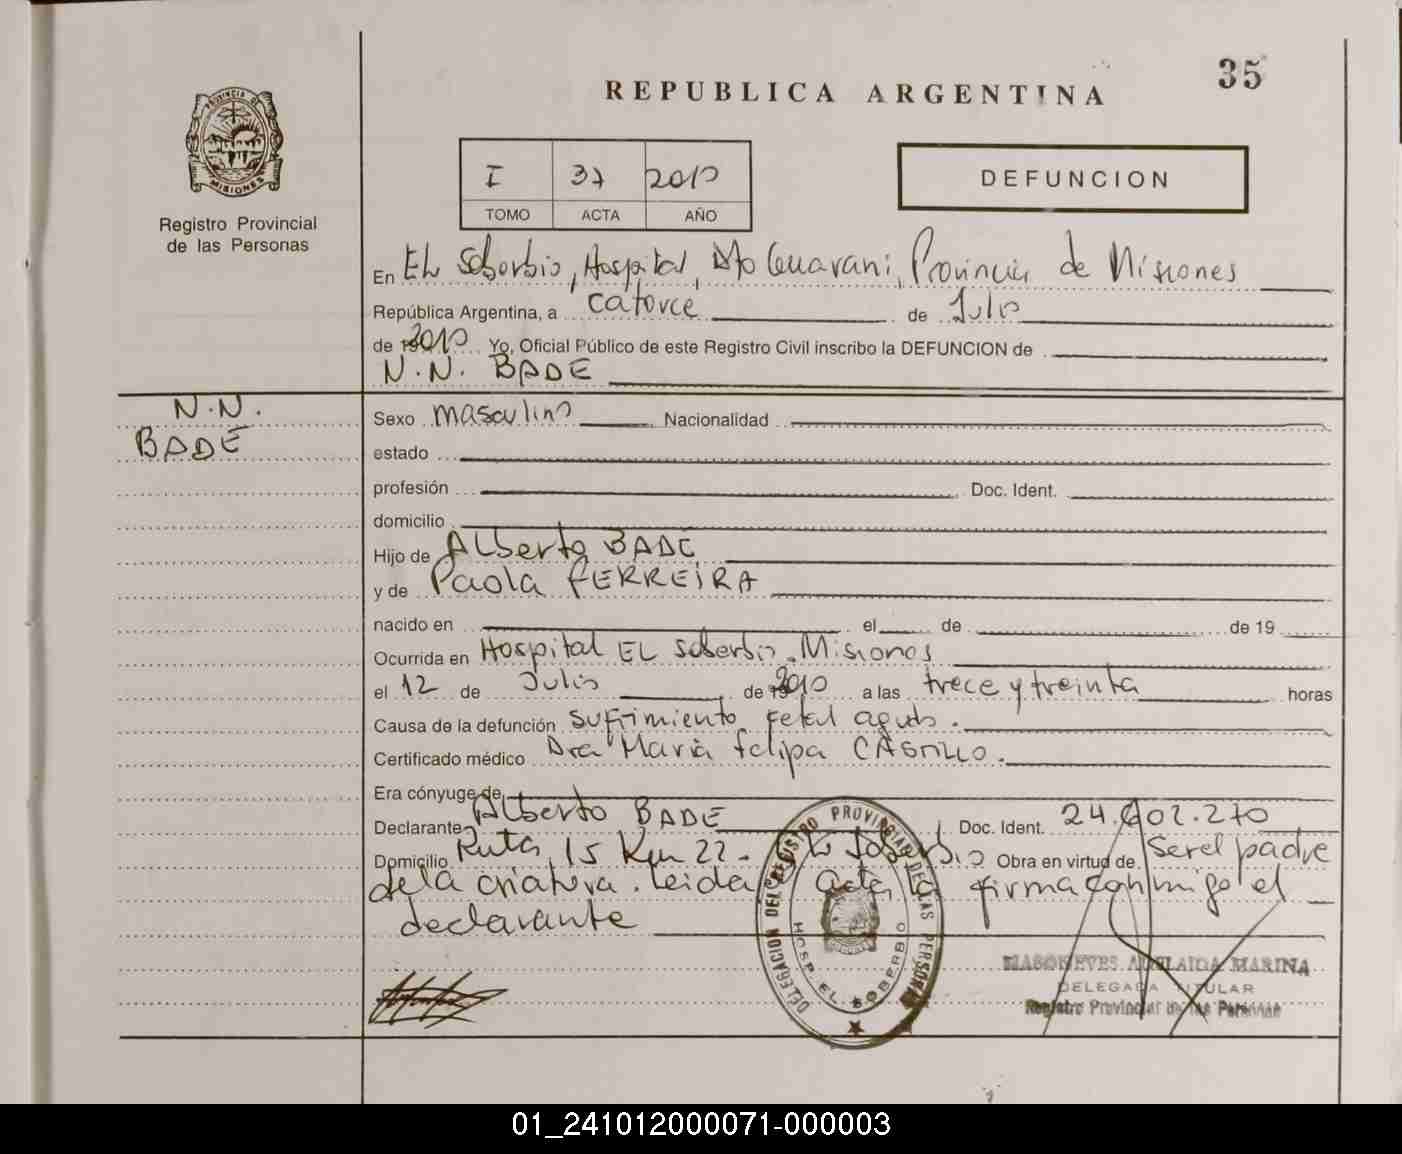 35
REPUBLICA ARGENTINA
PROVINCIA DE
MISIONES
Registro Provincial
de las Personas
I 37 2010
TOMO ACTA AÑO
DEFUNCION
En EL Soberbio, Hospital, Dto Guarani, Provincia de Misiones
República Argentina, a catorce de Julio
de 2010 Yo, Oficial Público de este Registro Civil inscribo la DEFUNCION de
N.N. BADE
N.N.
BADE
Sexo masculino Nacionalidad
estado
profesión Doc. Ident.
domicilio
Hijo de Alberto BADE
y de Paola FERREIRA
nacido en el de de 19
Ocurrida en Hospital EL Soberbio. Misiones
el 12 de Julio de 2010 a las trece y treinta horas
Causa de la defunción sufrimiento fetal agudo.
Certificado médico Dra Maria Felipa CASTILLO.
Era cónyuge de
Declarante Alberto BADE Doc. Ident. 24.602.270
Domicilio Ruta 15 Km 22 - El Soberbio Obra en virtud de Ser el padre
de la criatura. Leida el acta, la firma conmigo el
declarante
DELEGACION DEL REGISTRO PROVINCIAL DE LAS PERSONAS
HOSP. EL SOBERBIO
MASONEVES ADELAIDA MARINA
DELEGADA TITULAR
Registro Provincial de las Personas
01_241012000071-000003